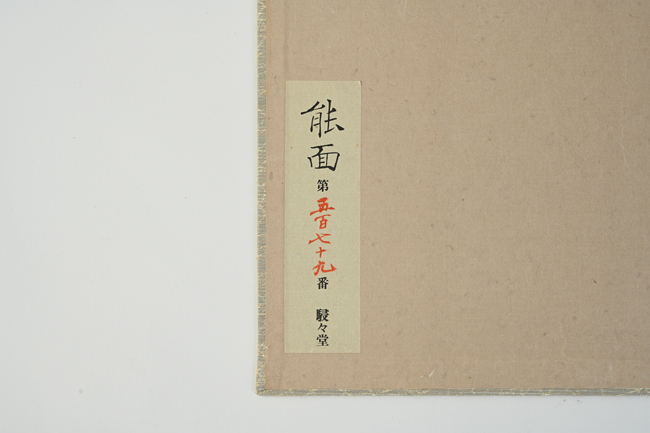 能面
第五百七十九番
駸々堂